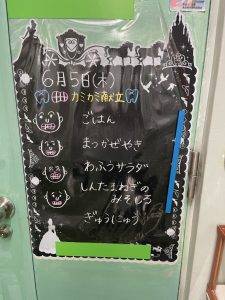 6月5日(木)
カミカミ献立
ごはん
まつかぜやき
わふうサラダ
しんたまねぎの
みそしる
ぎゅうにゅう